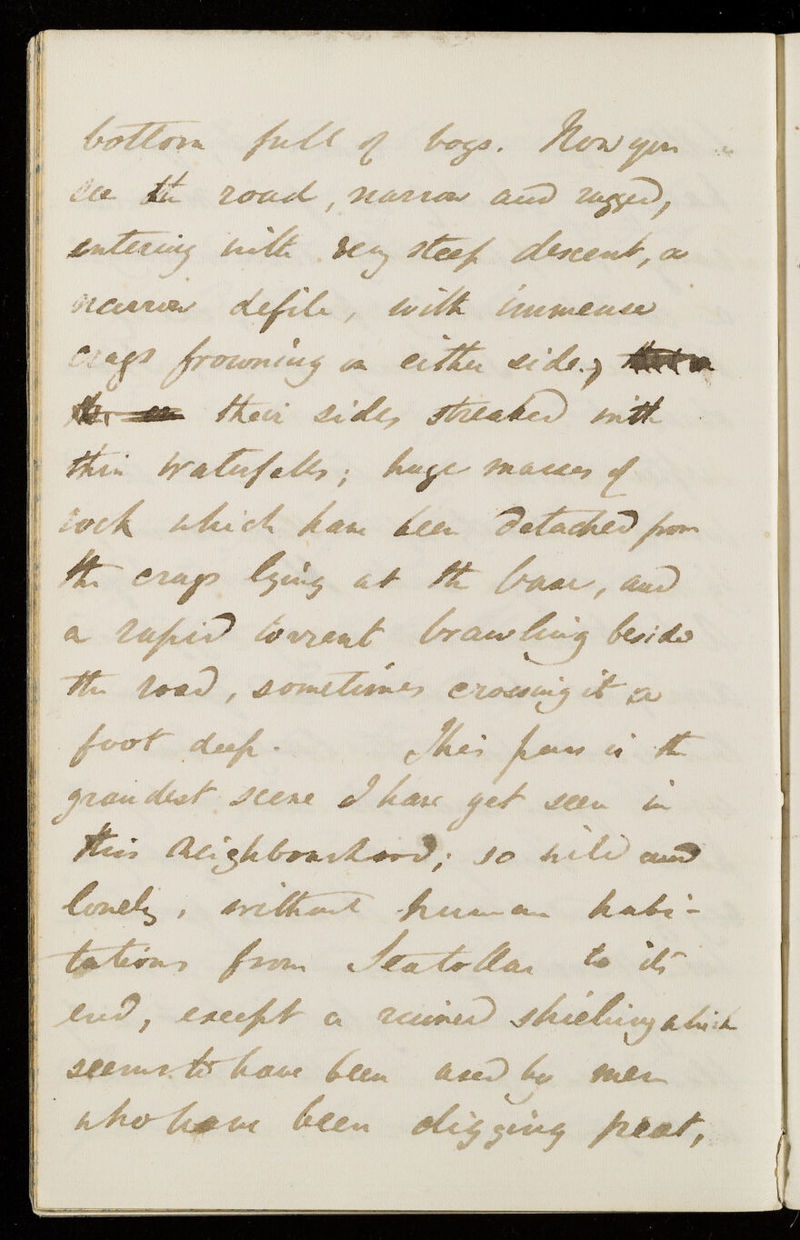 bottom full of bogs. Now you
see the road, narrow and rugged,
entering with very steep descent, a
narrow defile, with immense
crags frowning on either side,
their sides streaked with
thin waterfalls; huge masses of
rock which have been detached from
the crags lying at the base, and
a rapid torrent brawling beside
the road, sometimes crossing it a
foot deep. This pass is the
grandest scene I have yet seen in
this neighbourhood; so wild and
lonely, without human habi-
tations from Seatollar to its
end, except a ruined shieling which
seems to have been used by men
who have been digging peat,